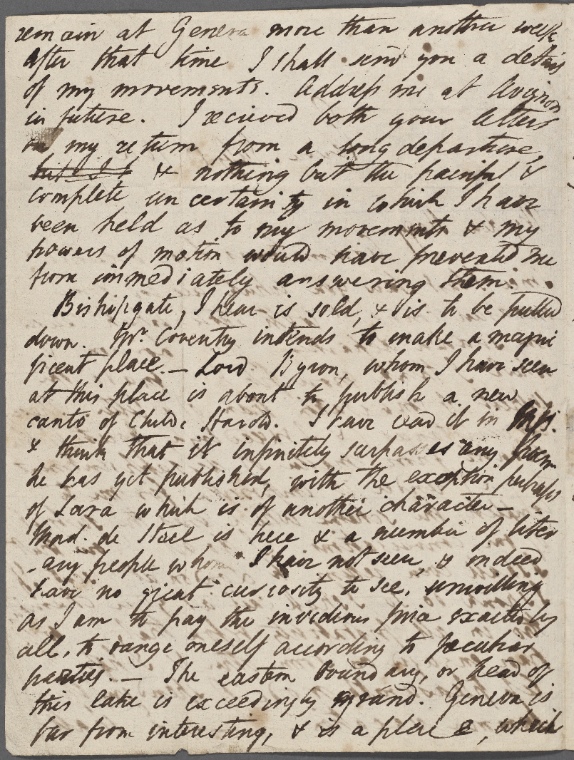 remain at Geneva more than another week
after that time I shall send you a detail
of my movements. Address me at Avignon
in future. I recieved both your letters
on my return from a long departure,
& nothing but the painful &
complete uncertainty in which I have
been held as to my movements & my
powers of motion would have prevented me
from immediately answering them.
Bishopgate, I hear is sold, & is to be pulled
down. Mr. Coventry intends to make a magni
ficent place — Lord Byron, whom I have seen
at this place is about to publish a new
canto of Childe Harold. I have read it in MSS.
& think that it infinitely surpasses any Poem
he has yet published, with the exception perhaps
of Lara which is of another character —
Mad. de Stael is here & a number of liter
-ary people whom I have not seen, & indeed
have no great curiosity to see, unwilling
as I am to pay the invidious price exacted by
all, to range oneself according to peculiar
parties. — The eastern boundary, or head of
this lake is exceedingly grand. Geneva is
far from interesting, & is a place, which